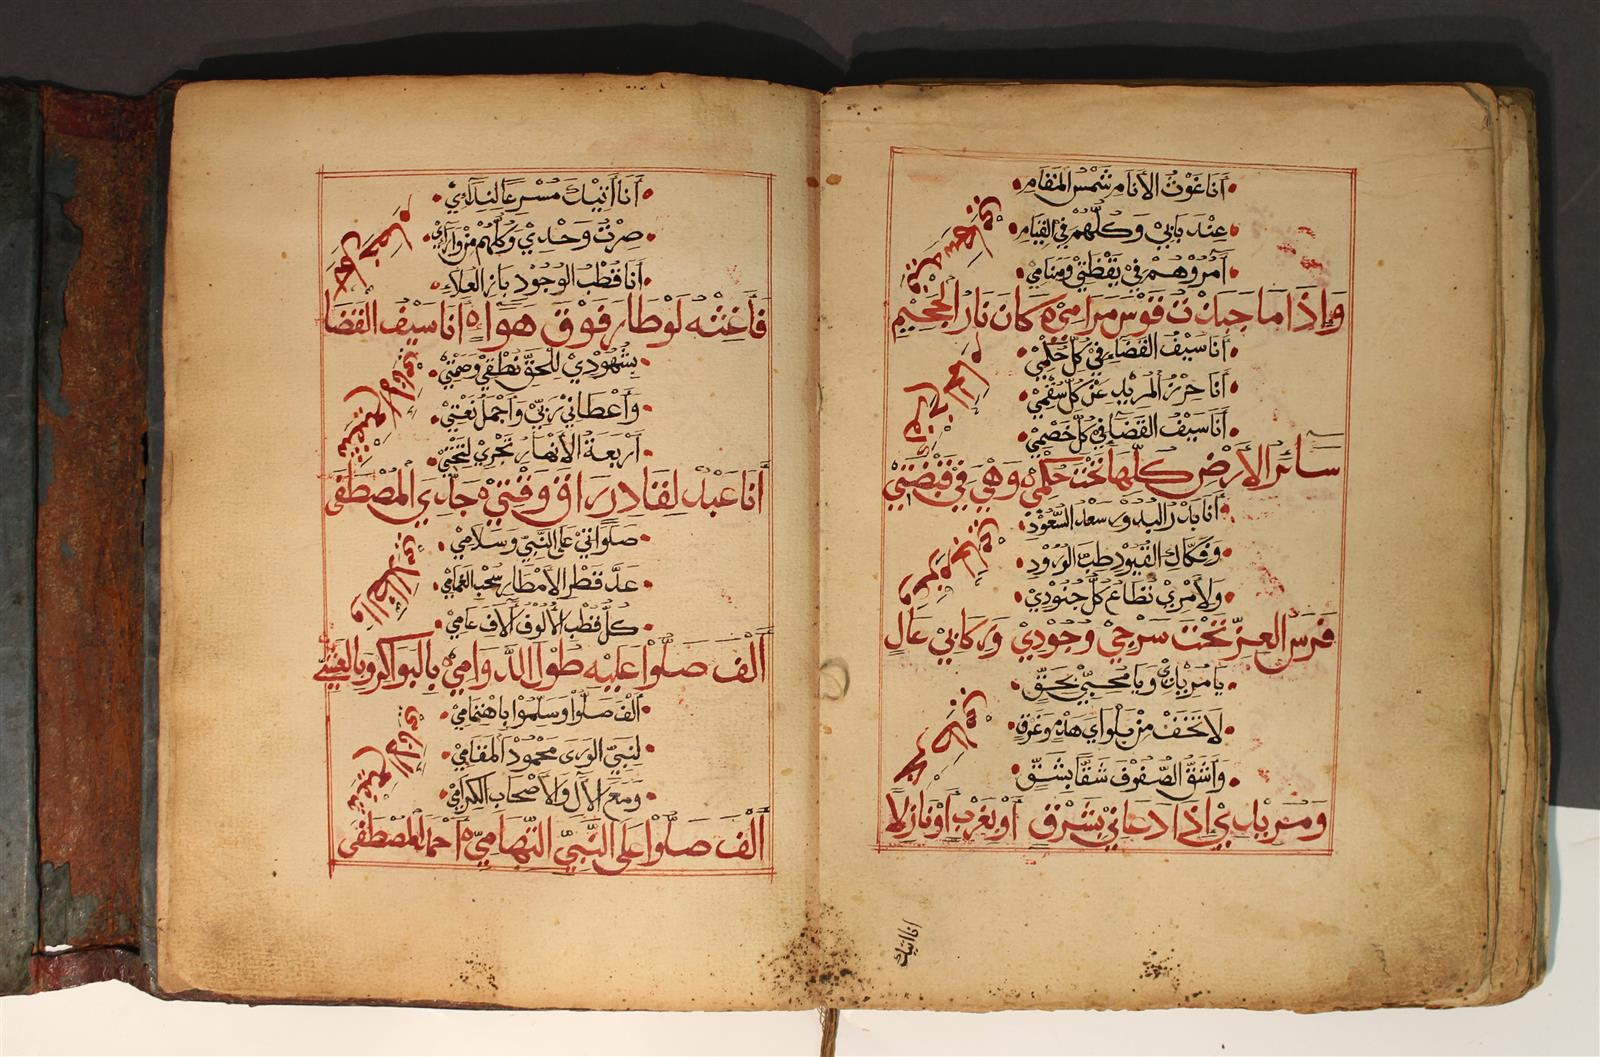 أَنَا غَوْثُ الْأَنَامِ شَمْسُ الْمَقَامِ
عِنْدَ بَابِيْ وَكُلُّهُمْ فِي الْقِيَامِ
أَمُرُوهُمْ فِيْ يَقْظَتِيْ وَمَنَامِيْ
وَإِذَا مَا جَبَذْتُ قَوْسَ مَرَامِيْ كَانَ نَارُ الْجَحِيْمِ
أَنَا سَيْفُ الْقَضَاءِ فِيْ كُلِّ حُكْمِيْ
أَنَا حِرْزُ الْمُرِيْدِ عَنْ كُلِّ سُقْمِيْ
أَنَا سَيْفُ الْقَضَا فِيْ كُلِّ خَصْمِيْ
سَائِرُ الْأَرْضِ كُلُّهَا تَحْتَ حُكْمِيْ وَهْيَ فِيْ قَبْضَتِيْ
أَنَا بَدْرُ الْبُدُورِ سَعْدُ السُّعُوْدِ
وَفَكَّاكُ الْقُيُودِ طِبُّ الْوُرُوْدِ
وَلِأَمْرِيْ تُطَاعُ كُلُّ جُنُودِيْ
فَرَسُ الْعِزِّ تَحْتَ سَرْجِيْ وُجُودِيْ وَرِكَابِيْ عَالِ
يَا مُرِيْدِيْ وَيَا مُحِبِّيْ بِحَقِّ
لَا تَخَفْ مِنْ بَلْوَايَ هَدْمٍ وَغَرَقِ
وَاشُقُّ الصُّفُوْفَ شَقًّا بِشَقِّ
وَمُرِيْدِيْ إِذَا دَعَانِيْ بِشَرْقٍ أَوْ بِغَرْبٍ أَوْ نَازِلًا
أنا أتيك
أَنَا أَتِيْكَ مُسْرِعًا لِنِدَائِيْ
صِرْتُ وَحْدِيْ وَكُلُّهُمْ مِنْ وَرَائِيْ
أَنَا قُطْبُ الْوُجُودِ بَازُ الْعَلَاءِ
فَأَغِثْهُ لَوْ طَارَ فَوْقَ هَوَاءِ أَنَا سَيْفُ الْقَضَا
بِشُهُودِيْ لِلْحَقِّ نُطْقِيْ وَصَمْتِيْ
وَأَعْطَانِيْ رَبِّيْ وَأَجْمَلَ نَعْتِيْ
أَرْبَعَةُ الْأَنْهَارِ تَجْرِيْ لِتَحْتِيْ
أَنَا عَبْدٌ لِقَادِرٍ رَاقَ وَقْتِيْ جَدِّيَ الْمُصْطَفَى
صَلَوَاتِيْ عَلَى النَّبِيِّ وَسَلَامِيْ
عَدَّ قَطْرِ الْأَمْطَارِ سُحْبِ الْغَمَامِيْ
كُلُّ قُطْبِ الْأُلُوْفِ آلَافِ عَامِيْ
أَلْفَ صَلُّوْا عَلَيْهِ طُوْلَ الدَّوَامِيْ بِالْبَوَاكِرِ وَبِالْعَشِيِّ
أَلْفَ صَلُّوْا وَسَلِّمُوا بِاهْتِمَامِيْ
لِنَبِيِّ الْوَرَى مَحْمُوْدِ الْمَقَامِيْ
وَمَعَ الْآلِ وَالْأَصْحَابِ الْكِرَامِيْ
أَلْفَ صَلُّوْا عَلَى النَّبِيِّ التِّهَامِيِّ أَحْمَدَ الْمُصْطَفَى